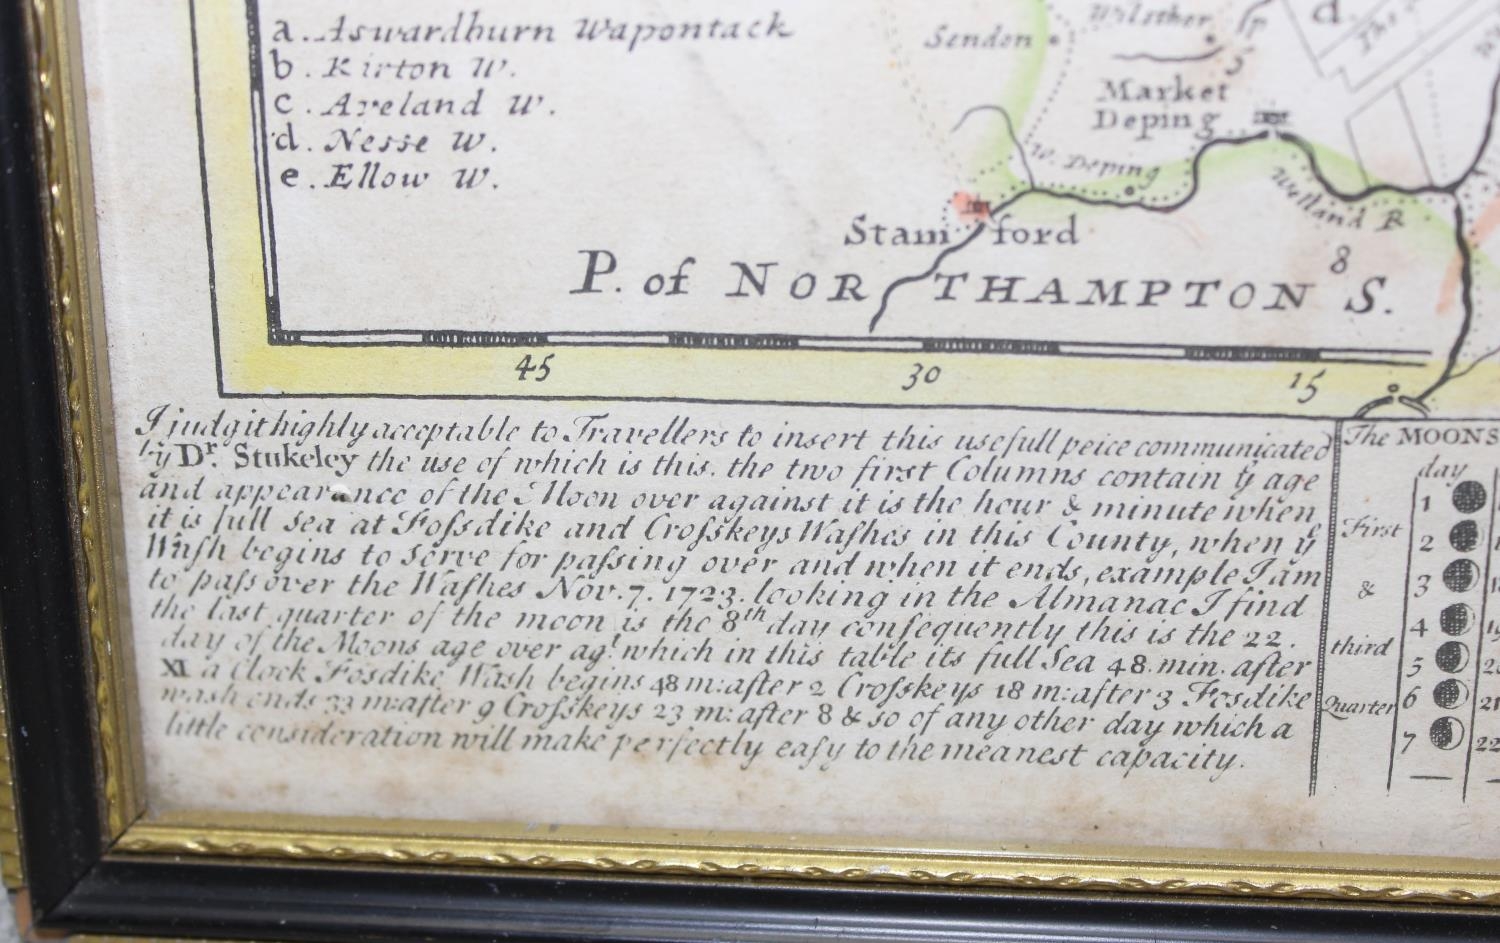 a. Aswardhurn Wapontack
b. Kirton W.
c. Aveland W.
d. Nesse W.
e. Ellow W.
Sendon
Wilsthor
d.
The
Market
Deping
W. Deping
Welland R
Stam ford
8
P. of NORTHAMPTON S.
45 30 15
I judg it highly acceptable to Travellers to insert this usefull peice communicated
by Dr. Stukeley the use of which is this. the two first Columns contain ye age
and appearance of the Moon over against it is the hour & minute when
it is full Sea at Fossdike and Crosskeys Washes in this County, when ye
Wash begins to serve for passing over and when it ends, example I am
to pass over the Washes Nov. 7. 1723. looking in the Almanac I find
the last quarter of the moon is the 8th day consequently this is the 22.
day of the Moons age over agt. which in this table its full Sea 48. min. after
XI a Clock Fosdike Wash begins 48 m: after 2 Crosskeys 18 m: after 3 Fosdike
wash ends 33 m: after 9 Crosskeys 23 m: after 8 & so of any other day which a
little consideration will make perfectly easy to the meanest capacity.
The MOONS
day
First
&
third
Quarter
1
2
3
4
5
6 21
7 22